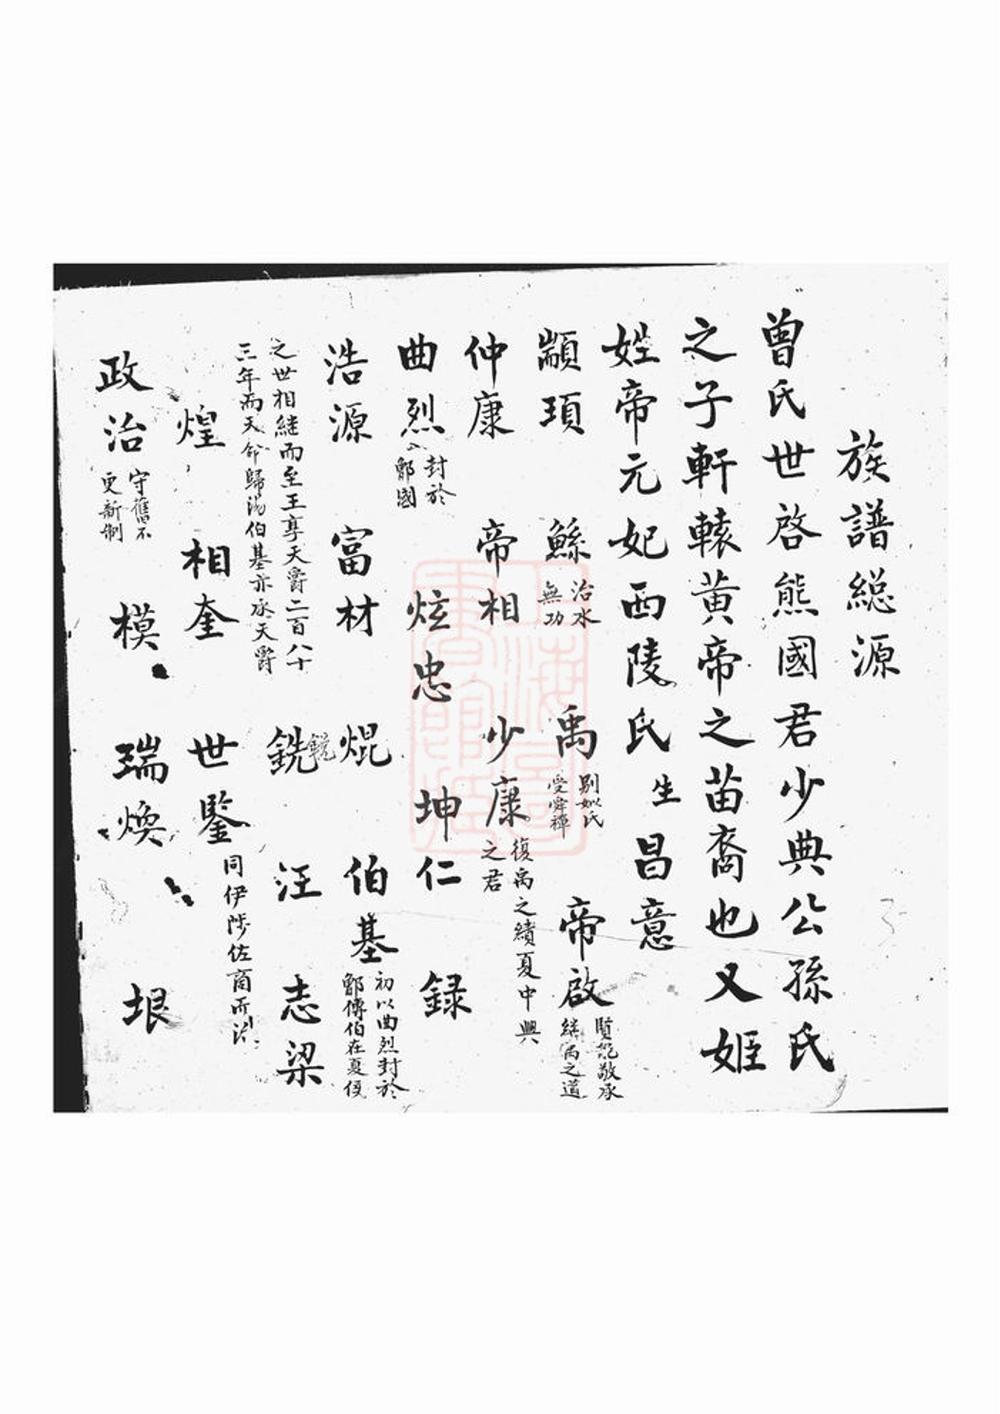 族譜総源
曾氏世啓熊國君少典公孫氏
之子軒轅黃帝之苗裔也又姬
姓帝元妃西陵氏生昌意
顓頊 鯀治水無功 禹別姒氏受舜禪 帝啟賢能敬承継禹之道
仲康 帝相 少康復禹之績夏中興之君
曲烈封於鄫國 炫忠 坤仁 録
浩源 富材 焜 伯基初以曲烈封於鄫傳伯在夏侯
之世相継而至王享天爵二百八十
三年而天命歸湯伯基亦承天爵
銑 汪 志梁
煌 相奎 世鑒同伊陟佐商而治
政治守舊不更新制 模 瑞煥 垠
上海圖書館藏